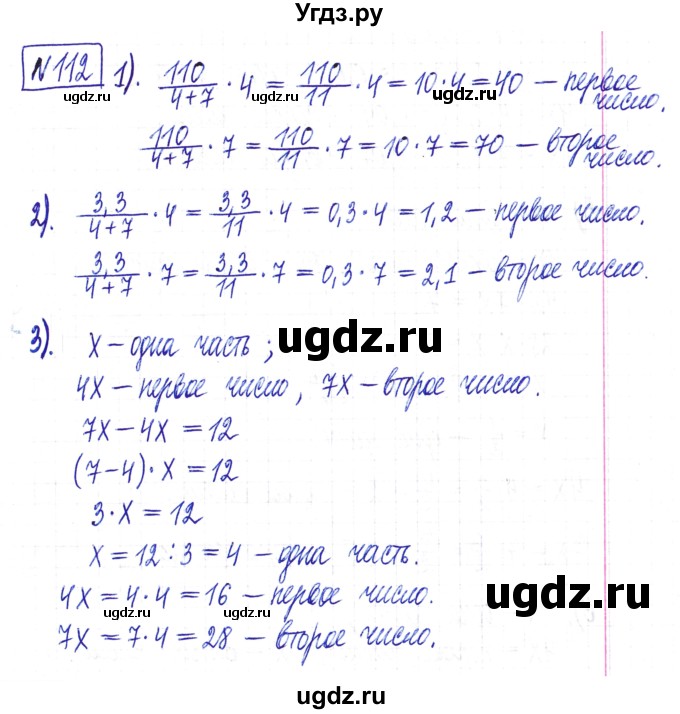 Угдз.ру
№112 1). 110/(4+7) · 4 = 110/11 · 4 = 10·4 = 40 – первое число.
110/(4+7) · 7 = 110/11 · 7 = 10·7 = 70 – второе число.
2). 3,3/(4+7) · 4 = 3,3/11 · 4 = 0,3·4 = 1,2 – первое число.
3,3/(4+7) · 7 = 3,3/11 · 7 = 0,3·7 = 2,1 – второе число.
3). x – одна часть;
4x – первое число, 7x – второе число.
7x – 4x = 12
(7–4)·x = 12
3·x = 12
x = 12:3 = 4 – одна часть.
4x = 4·4 = 16 – первое число.
7x = 7·4 = 28 – второе число.
ugdz.ru
ugdz.ru
ugdz.ru
ugdz.ru
ugdz.ru
ugdz.ru
ugdz.ru
ugdz.ru
ugdz.ru
ugdz.ru
ugdz.ru